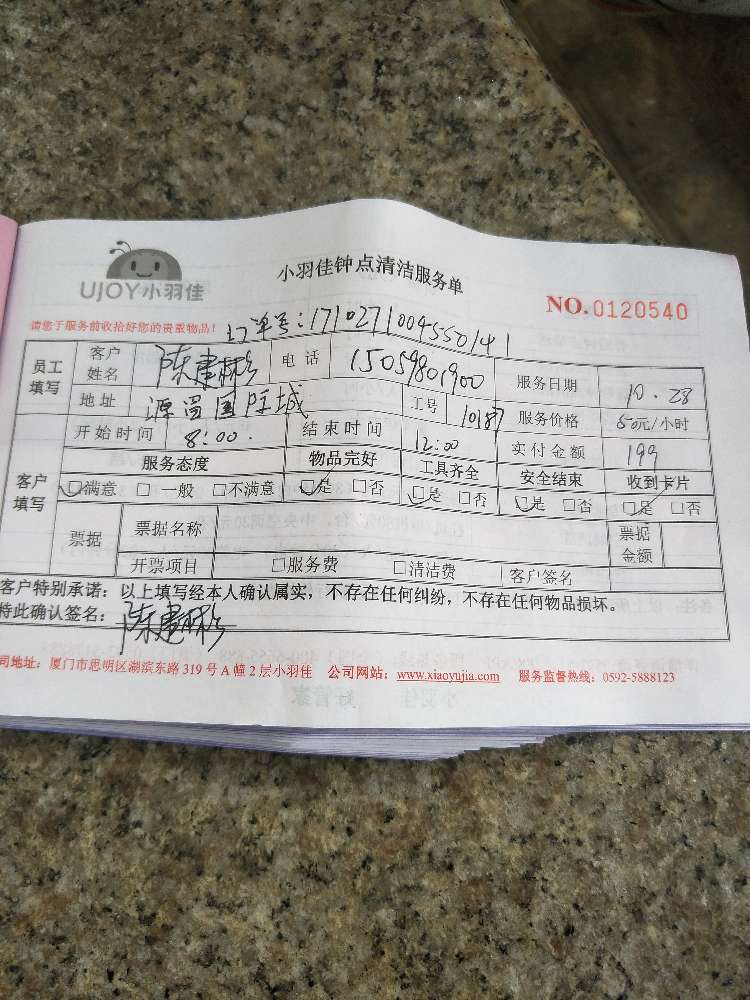 UJOY小羽佳
小羽佳钟点清洁服务单
NO.0120540
请您于服务前收拾好您的贵重物品!
订单号:1710271004550141
员工填写 客户姓名 陈建彬 电话 15059801900 服务日期 10.28
地址 源昌国际城 工号 10187 服务价格 50元/小时
客户填写 开始时间 8:00 结束时间 12:00 实付金额 199
服务态度 物品完好 工具齐全 安全结束 收到卡片
□满意 □一般 □不满意 □是 □否 □是 □否 □是 □否 □是 □否
票据 票据名称 票据金额
开票项目 □服务费 □清洁费 客户签名
客户特别承诺:以上填写经本人确认属实,不存在任何纠纷,不存在任何物品损坏。
特此确认签名:陈建彬
司地址:厦门市思明区湖滨东路319号A幢2层小羽佳 公司网站:www.xiaoyujia.com 服务监督热线:0592-5888123